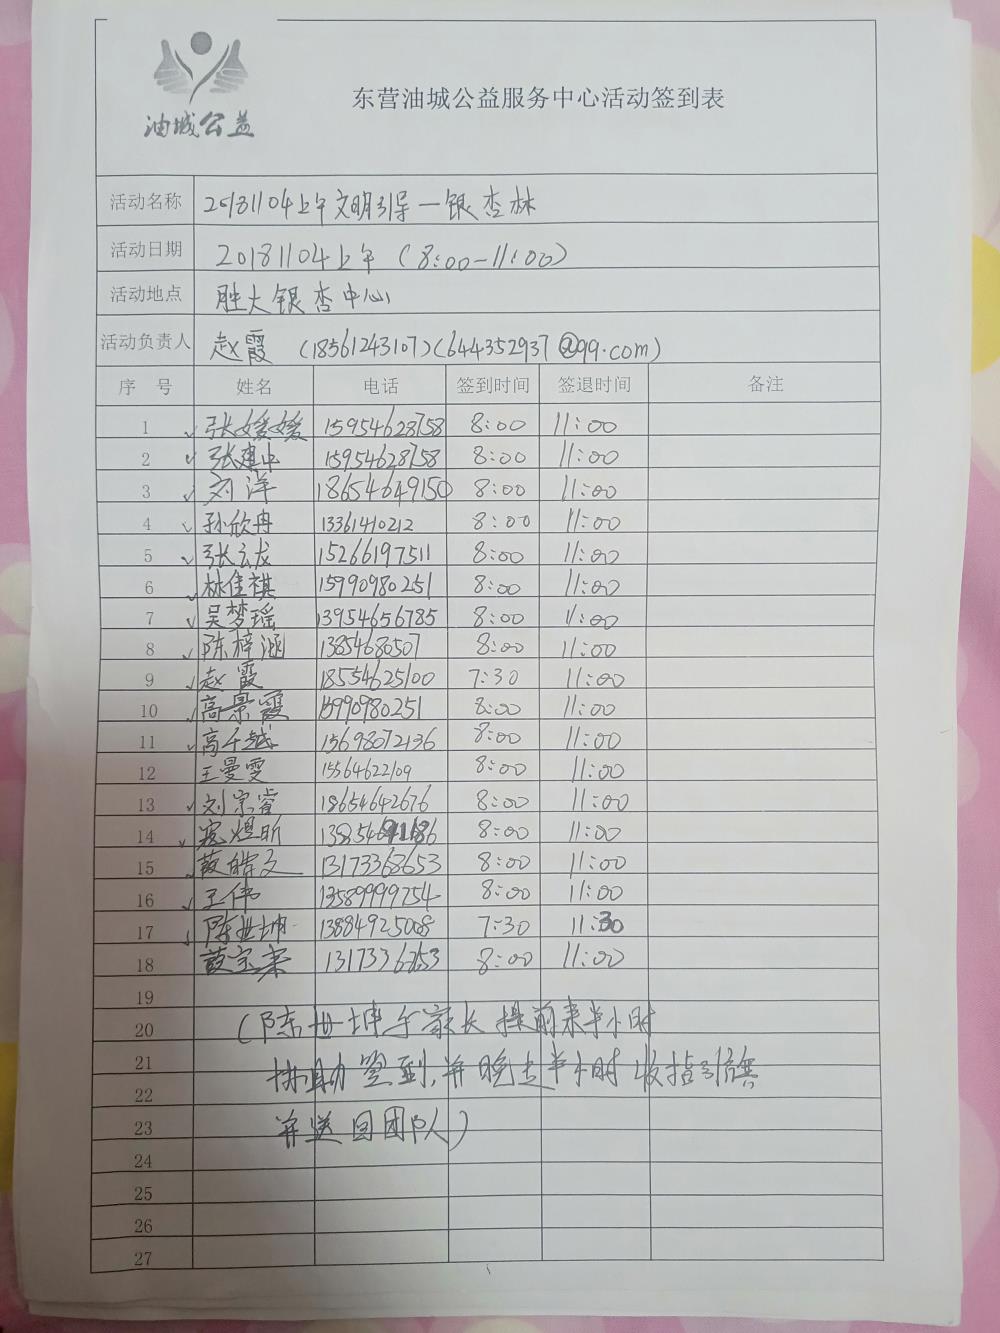 油城公益
东营油城公益服务中心活动签到表
活动名称 20181104上午文明引导一银杏林
活动日期 20181104上午 (8:00-11:00)
活动地点 胜大银杏中心
活动负责人 赵霞 (18561243107)(644352937@qq.com)
序号 姓名 电话 签到时间 签退时间 备注
1 张媛媛 15954628758 8:00 11:00
2 张建中 15954628758 8:00 11:00
3 刘洋 18654649150 8:00 11:00
4 孙欣冉 13361410212 8:00 11:00
5 张云龙 15266197511 8:00 11:00
6 林佳祺 15990980251 8:00 11:00
7 吴梦瑶 13954656785 8:00 11:00
8 陈梓涵 13854686507 8:00 11:00
9 赵霞 18554625100 7:30 11:00
10 高景霞 15990980251 8:00 11:00
11 高千越 15698072136 8:00 11:00
12 王曼雯 15564622109 8:00 11:00
13 刘宗睿 18654642676 8:00 11:00
14 煜昕 8:00 11:00
15 薛皓文 13173368653 8:00 11:00
16 王伟 13589999754 8:00 11:00
17 陈世坤 13884925008 7:30 11:30
18 8:00 11:00
19
20 (陈世坤与家长提前来半小时
21 协助签到,并晚走半小时收指引旗
22
23 并送回团队)
24
25
26
27